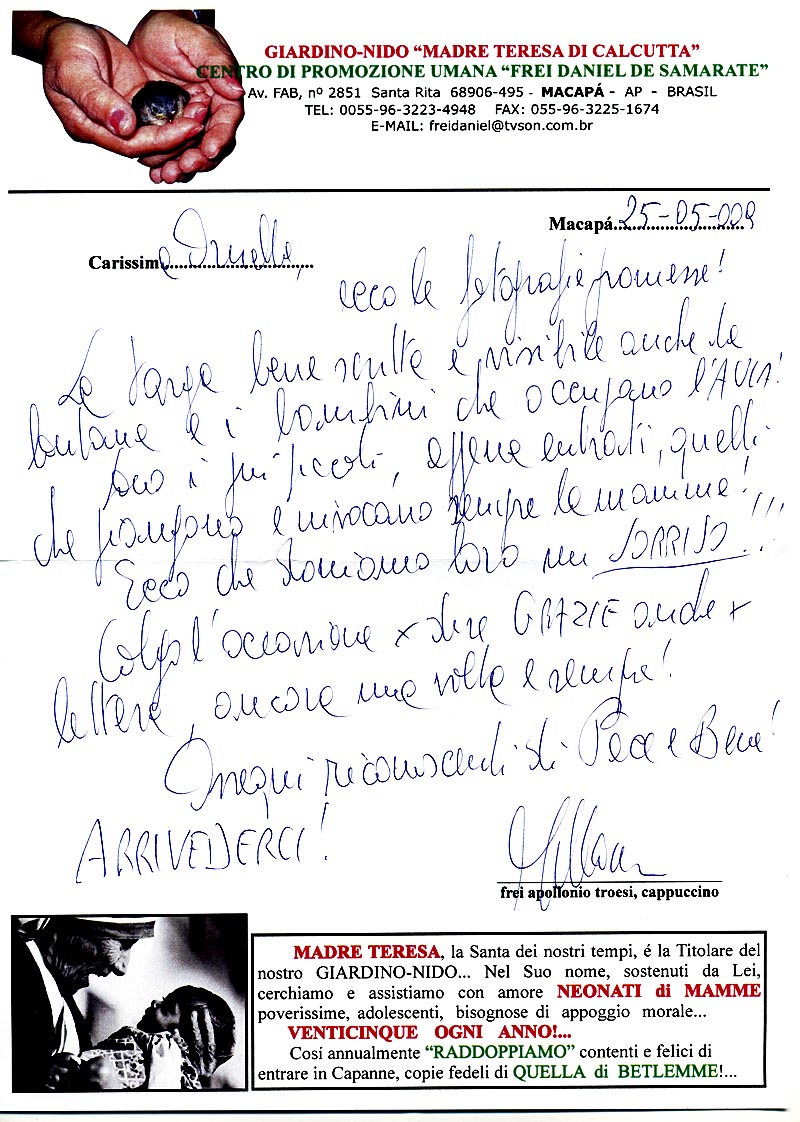 GIARDINO-NIDO “MADRE TERESA DI CALCUTTA”
CENTRO DI PROMOZIONE UMANA “FREI DANIEL DE SAMARATE”
Av. FAB, nº 2851 Santa Rita 68906-495 - MACAPÁ - AP - BRASIL
TEL: 0055-96-3223-4948 FAX: 055-96-3225-1674
E-MAIL: freidaniel@tvson.com.br
Macapá 25-05-009
Carissima Ornella,
ecco le fotografie promesse!
La targa bene scritta e visibile anche da
lontano e i bambini che occupano l'AULA!
Sono i più piccoli, appena entrati, quelli
che piangono e invocano sempre la mamma!
Ecco che doniamo loro un SORRISO!!!
Colgo l'occasione x dire GRAZIE anche x
lettera, ancora una volta e sempre!
Ossequi riconoscenti di Pace e Bene!
ARRIVEDERCI!
frei apollonio troesi, cappuccino
MADRE TERESA, la Santa dei nostri tempi, é la Titolare del
nostro GIARDINO-NIDO... Nel Suo nome, sostenuti da Lei,
cerchiamo e assistiamo con amore NEONATI di MAMME
poverissime, adolescenti, bisognose di appoggio morale...
VENTICINQUE OGNI ANNO!...
Cosi annualmente “RADDOPPIAMO” contenti e felici di
entrare in Capanne, copie fedeli di QUELLA di BETLEMME!...